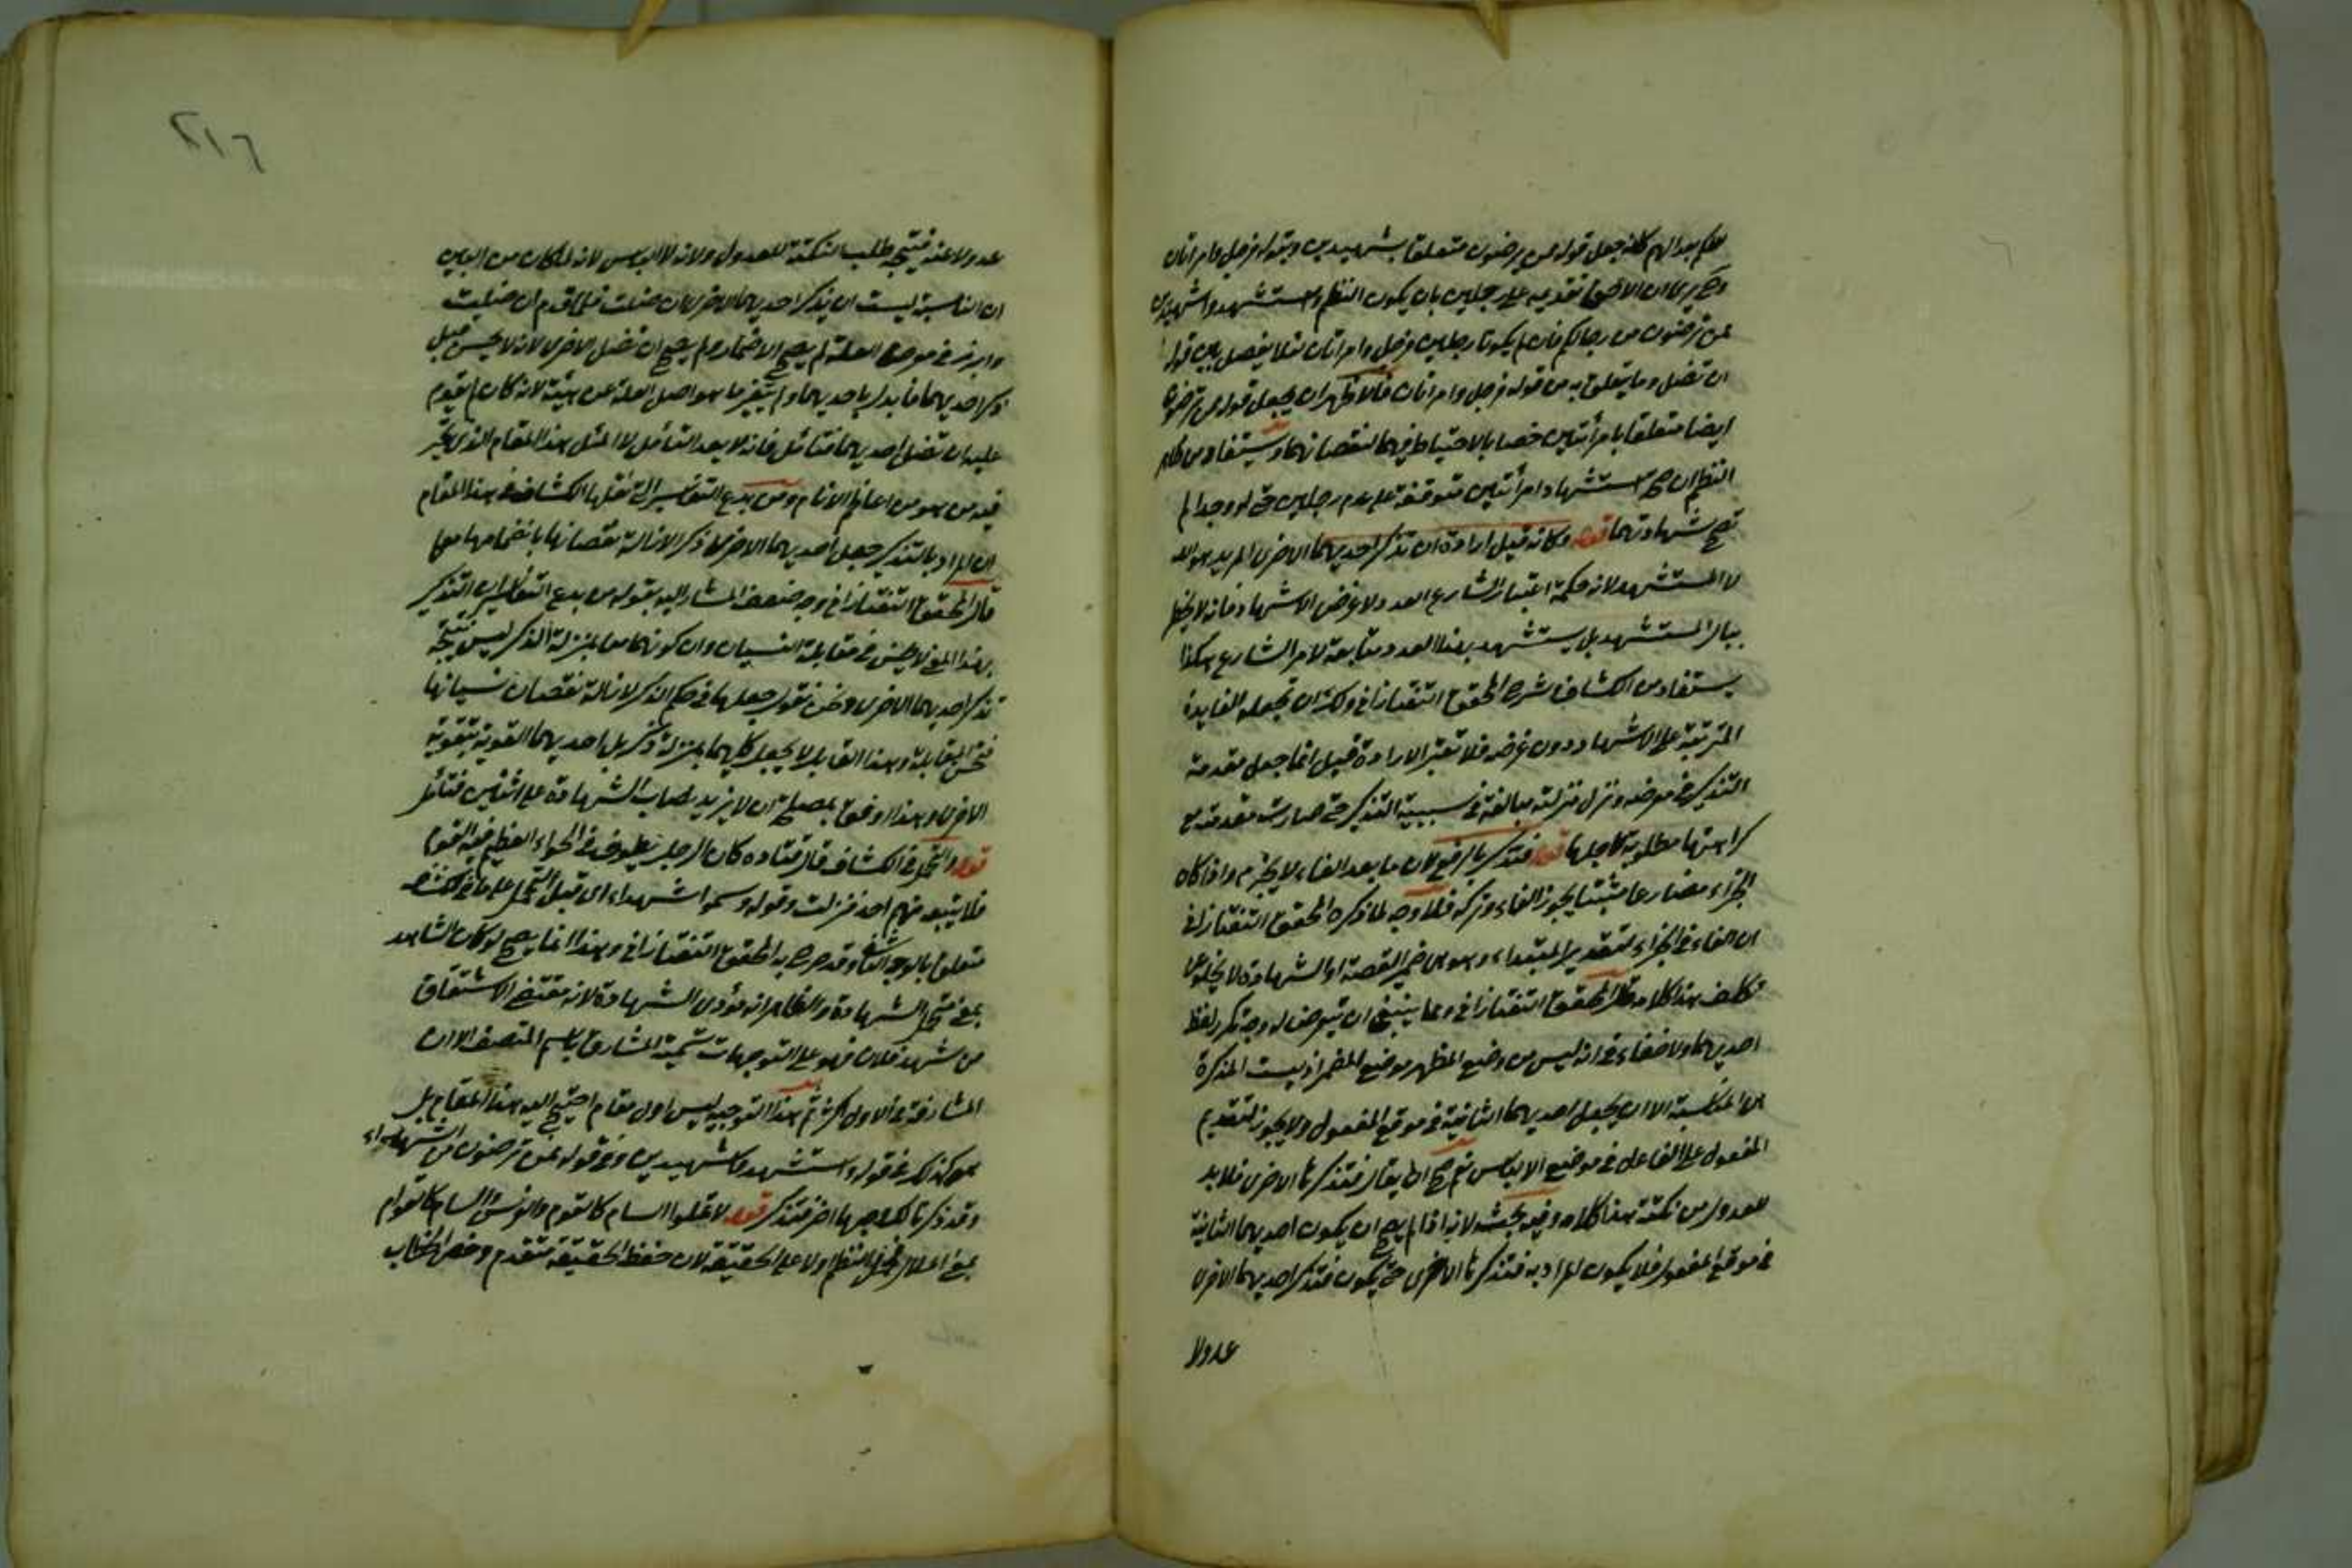 لعلكم بعدالتهم كانه جعل قوله ممن ترضون متعلقا بشهيدين وبقوله فرجل وامراتان
ان الاخصر تقديمه على رجلين بان يكون النظم واستشهدوا شهيدين
ممن ترضون من رجالكم فان لم يكونا رجلين فرجل وامراتان لئلا يفصل بين قوله
ان تضل وما يتعلق به من قوله فرجل وامراتان فالاظهر ان يجعل قوله ممن ترضون
ايضا متعلقا بامرأتين خصا بالاحتياط فيهما لنقصانهما ويستفاد من ظاهر
النظم ان صحة استشهاد امرأتين متوقفة على عدم رجلين حتى لو وجدا لم
تصح شهادتهما قوله وكانه قيل ارادة ان تذكر احديهما الاخرى المريد هو الله
لا المستشهد لانه حكمة اعتبار الشارع العدد ولا غرض الاشهاد فانه لا يخطر
ببال المستشهد بل يستشهد بهذا العدد متابعة لامر الشارع هكذا
يستفاد من الكشاف شرح المحقق التفتازاني ولك ان تجعله الفايدة
المترتبة على الاشهاد دون غرضه فلا تعتبر الارادة قيل انما جعل مقدمة
التذكير في موضعه ونزل منزلته مبالغة في سببية التذكير حتى صارت مقدمته مع
كراهتها مطلوبة لاجلها قوله فتذكر بالرفع لان ما بعد الفاء لا يجزم واذا كان
الجزاء مضارعا مثبتا يجوز الفاء وتركه فلا وجه لما ذكره المحقق التفتازاني
ان الفاء في الجزاء لتقدير المبتداء وهو ضمير القصة او الشهادة لا يخلو عن
تكلف هذا كلامه قال المحقق التفتازاني ومما ينبغي ان يتعرض له وجه تكرر لفظ
احديهما ولا خفاء في انه ليس من وضع المظهر موضع المضمر اذ ليست المذكرة
هي الناسية الا ان يجعل احديهما الثانية في موقع المفعول ولا يجوز لتقديم
المفعول على الفاعل في موضع الالباس نعم صح ان يقال فتذكرها الاخرى فلا بد
للعدول من نكتة هذا كلامه وفيه بحث لانه اذا لم يصح ان يكون احديهما الثانية
في موقع المفعول فلا يكون المراد به فتذكرها الاخرى حتى يكون فتذكر احديهما الاخرى
عدولا
٤١٦
عدولا عنه فيتجه طلب النكتة للعدول ولانه لا الباس لانه لما كان من البين
ان الناسية ليست ان يذكر احديهما الاخرى ان ضلت فلما قدم ان ضلت
وابرز في موضع العلة لم يصح الاضمار ولم يصح ان تضل الاخرى لانه لا يحسن قبل
ذكر احديهما فابدل باحديهما ولم يتغير ما هو اصل العلة عن هيئته لانه كان لم يقدم
عليه ان تضل احديهما فتأمل فانه لا يعد التأمل لا المثل هذا المقام الذي تحير
فيه من هو من اعاظم الانام ومن بدع التفاسير التي نقلها الكشاف في هذا المقام
ان المراد بالتذكير جعل احديهما الاخرى ذكرا لازالة نقصانها بانضمامها معها
قال المحقق التفتازاني وجه ضعفه المشار اليه بقوله من بدع التفاسير ان التذكير
بهذا المعنى لا يحسن في مقابلة النسيان وان كونهما معا بمنزلة الذكر ليس نتيجة
تذكر احديهما الاخرى ونحن نقول جعلها في حكم الذكر لازالة نقصان نسيانها
فتحسن المقابلة وهذا القايل لا يجعل كليهما بمنزلة ذكر بل احديهما القوية بتقوية
الاخرى وهذا اوفق بمصلحة ان لا يزيد نصاب الشهادة على اثنين فتأمل
قوله والتحمل في الكشاف قال قتادة كان الرجل يطوف في الحواء العظيم فيه القوم
فلا يتبعه منهم احد فنزلت وقوله وسموا شهداء اى قبل التحمل على ما في الكشاف
متعلق بالوجه الثاني وقد صرح به المحقق التفتازاني وهذا انما يصح لو كان الشاهد
بمعنى متحمل الشهادة والظاهر انه مؤدى الشهادة لانه مقتضى الاشتقاق
من شهد فلان فهو على التوجهات تسمية المشارف باسم المتصف الا ان
المشارفة في الاول اكثر ثم هذا التوجيه ليس اول مقام احتيج اليه هذا المقام بل
هو كذلك في قوله واستشهدوا شهيدين وفي قوله ممن ترضون من الشهداء
وقد ذكرنا لك وجها اخر فتذكر قوله لا تملوا السام كالقوم والونس والسام كالقوام
بمعنى الملال فحمل النظم اولا على الحقيقة لان حفظ الحقيقة متقدم وخص الخطاب